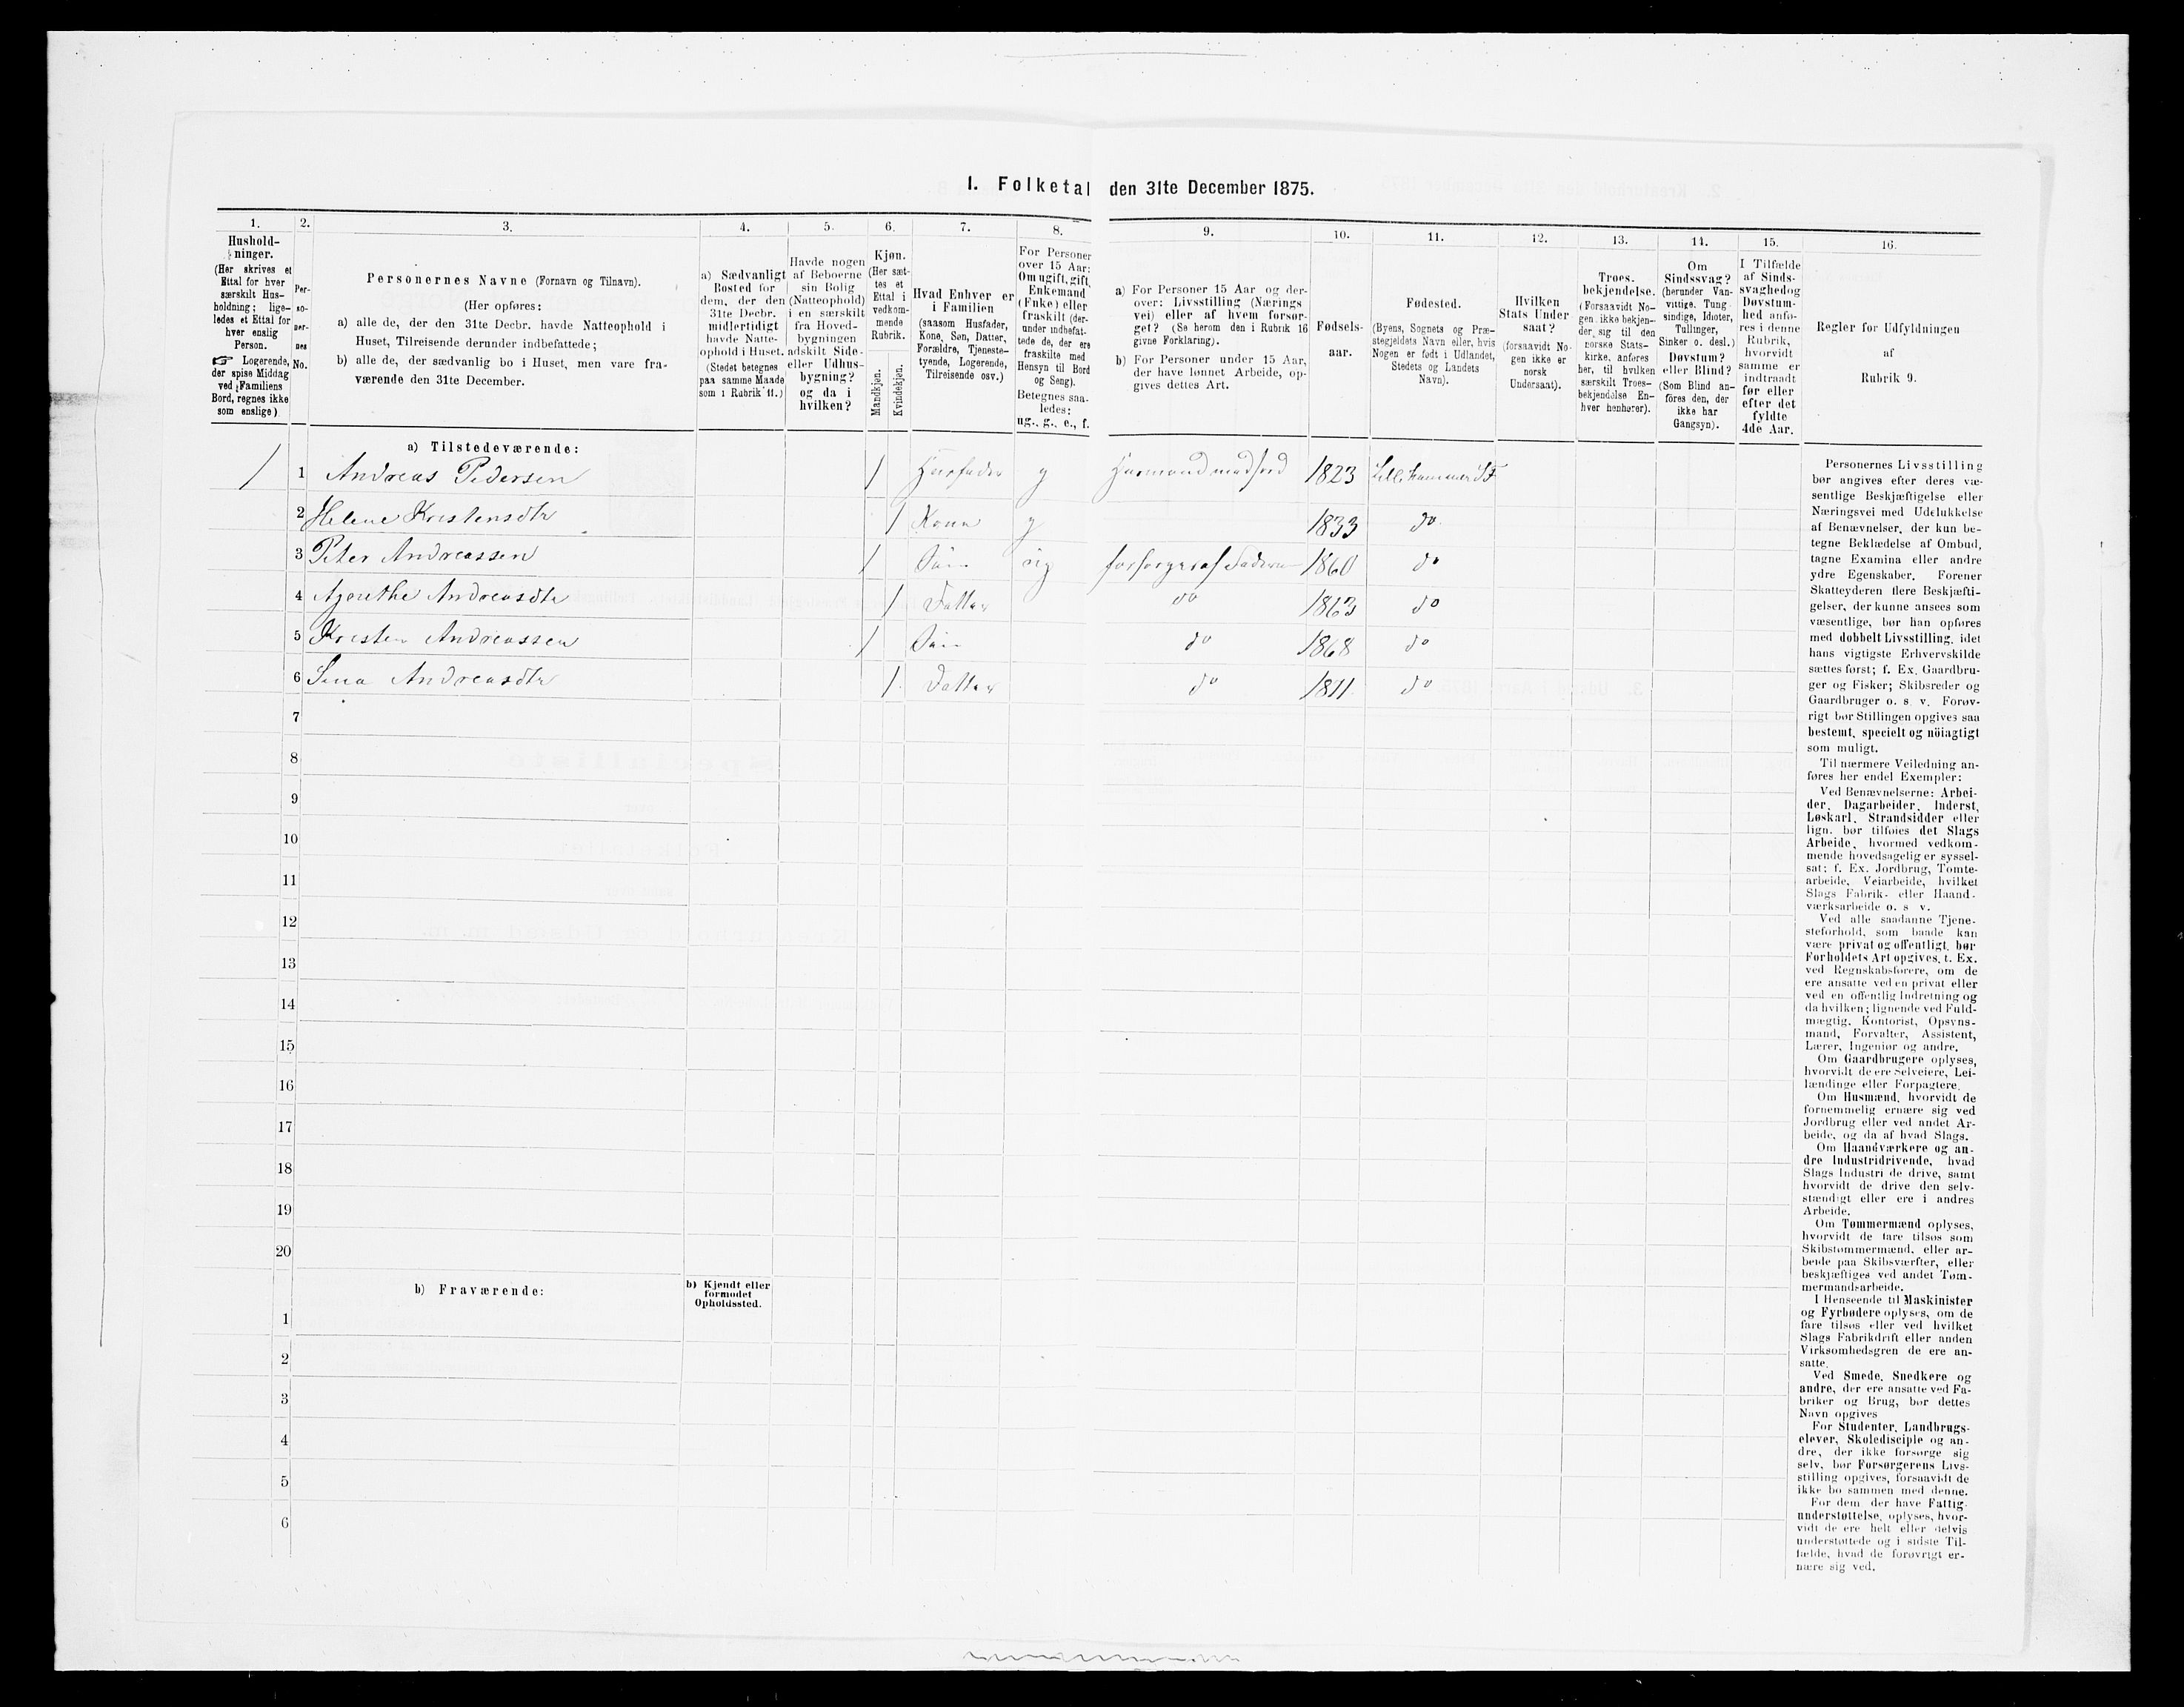 I. Folketal den 31te December 1875.
1.
Hushold-
ninger.
(Her skrives et
Ettal for hver
særskilt Hus-
holdning; lige-
ledes et Ettal for
hver enslig
Person.
☞ Logerende,
der spise Middag
ved Familiens
Bord, regnes ikke
som enslige)
2.
Per-
so-
ner-
nes
No.
3.
Personernes Navne (Fornavn og Tilnavn).
(Her opføres:
a) alle de, der den 31te Decbr. havde Natteophold i
Huset, Tilreisende derunder indbefattede;
b) alle de, der sædvanlig bo i Huset, men vare fra-
værende den 31te December.
4.
a) Sædvanligt
Bosted for
dem, der den
31te Decbr.
midlertidigt
havde Natte-
ophold i Huset.
(Stedet betegnes
paa samme Maade
som i Rubrik 11.)
5.
Havde nogen
af Beboerne
sin Bolig
(Natteophold)
i en særskilt
fra Hoved-
bygningen
adskilt Side-
eller Udhus-
bygning?
og da i
hvilken?
6.
Kjøn.
(Her sæt-
tes et
Ettal i
vedkom-
mende
Rubrik.
Mandkjøn.
Kvindekjøn.
7.
Hvad Enhver er
i Familien
(saasom Husfader,
Kone, Søn, Datter,
Forældre, Tjeneste-
tyende, Logerende,
Tilreisende osv.)
8.
For Personer
over 15 Aar:
Om ugift, gift,
Enkemand
(Enke) eller
fraskilt (der-
under indbefat-
tede de, der ere
fraskilte med
Hensyn til Bord
og Seng).
Betegnes saa-
ledes:
ug., g., e., f.
9.
a) For Personer 15 Aar og der-
over: Livsstilling (Nærings
vei) eller af hvem forsør-
get? (Se herom den i Rubrik 16
givne Forklaring).
b) For Personer under 15 Aar,
der have lønnet Arbeide, op-
gives dettes Art.
10.
Fødsels-
aar.
11.
Fødested.
(Byens, Sognets og Præ-
stegjeldets Navn eller, hvis
Nogen er født i Udlandet,
Stedets og Landets
Navn).
12.
Hvilken
Stats Under
saat?
(forsaavidt No-
gen ikke er
norsk
Undersaat).
13.
Troes-
bekjendelse.
(Forsaavidt No-
gen ikke bekjen-
der sig til den
norske Stats-
kirke, anføres
her, til hvilken
særskilt Troes-
bekjendelse En-
hver henhører).
14.
Om
Sindssvag?
(herunder Van-
vittige, Tung-
sindige, Idioter,
Tullinger,
Sinker o. desl.)
Døvstum?
eller Blind?
(Som Blind an-
føres den, der
ikke har
Gangsyn).
15.
I Tilfælde
af Sinds-
svaghed og
Døvstum-
hed anfø-
res i denne
Rubrik,
hvorvidt
samme er
indtraadt
før eller
efter det
fyldte
4de Aar.
16.
Regler for Udfyldningen
af
Rubrik 9.
a) Tilstedeværende:
1 1 Andreas Pedersen 1 Husfader g Husmand med Jord 1823
2 Helene Kristensdtr 1 Kone g 1833 do
3 Peter Andreassen 1 Søn ug forsørges af Faderen 1860 do
4 Agnethe Andreasdtr 1 Datter do 1863 do
5 Kristen Andreassen 1 Søn do 1868 do
6 Andreasdtr 1 Datter do 1871 do
7
8
9
10
11
12
13
14
15
16
17
18
19
20
b) Fraværende:
b) Kjendt eller
formodet
Opholdssted.
1
2
3
4
5
6
Personernes Livsstilling
bør angives efter deres væ-
sentlige Beskjæftigelse eller
Næringsvei med Udelukkelse
af Benævnelser, der kun be-
tegne Beklædelse af Ombud,
tagne Examina eller andre
ydre Egenskaber. Forener
Skatteyderen flere Beskjæfti-
gelser, der kunne ansees som
væsentlige, bør han opføres
med dobbelt Livsstilling, idet
hans vigtigste Erhvervskilde
sættes først; f. Ex. Gaardbru-
ger og Fisker; Skibsreder og
Gaardbruger o. s. v. Forøv-
rigt bør Stillingen opgives saa
bestemt, specielt og nöiagtigt
som muligt.
Til nærmere Veiledning an-
føres her endel Exempler:
Ved Benævnelserne: Arbei-
der, Dagarbeider, Inderst,
Løskarl, Strandsidder eller
lign. bør tilføies det Slags
Arbeide, hvormed vedkom-
mende hovedsagelig er syssel-
sat; f. Ex. Jordbrug, Tomte-
arbeide, Veiarbeide, hvilket
Slags Fabrik- eller Haand-
værksarbeide o. s v.
Ved alle saadanne Tjene-
steforhold, som baade kan
være privat og offentligt, bør
Forholdets Art opgives, t. Ex.
ved Regnskabsførere, om de
ere ansatte ved en privat eller
ved en offentlig Indretning og
da hvilken; lignende ved Fuld-
mægtig, Kontorist, Opsyns-
mand, Forvalter, Assistent,
Lærer, Ingeniør og andre.
Om Gaardbrugere oplyses,
hvorvidt de ere Selveiere, Lei-
lændinge eller Forpagtere.
Om Husmænd, hvorvidt de
fornemmelig ernære sig ved
Jordbrug eller ved andet Ar-
beide, og da af hvad Slags.
Om Haandværkere og an-
dre Industridrivende, hvad
Slags Industri de drive, samt
hvorvidt de drive den selv-
stændigt eller ere i andres
Arbeide.
Om Tømmermænd oplyses,
hvorvidt de fare tilsøs som
Skibstømmermænd, eller ar-
beide paa Skibsværfter, eller
beskjæftiges ved andet Tøm-
mermandsarbeide.
I Henseende til Maskinister
og Fyrbødere oplyses, om de
fare tilsøs eller ved hvilket
Slags Fabrikdrift eller anden
Virksomhedsgren de ere an-
satte.
Ved Smede, Snedkere og
andre, der ere ansatte ved Fa-
briker og Brug, bør dettes
Navn opgives
For Studenter, Landbrugs-
elever, Skoledisciple og an-
dre, der ikke forsørge sig
selv, bør Forsørgerens Livs-
stilling opgives, forsaavidt de
ikke bo sammen med denne.
For dem der have Fattig-
understøttelse, oplyses, hvor-
vidt de ere helt eller delvis
understøttede og i sidste Til-
fælde, hvad de forøvrigt er-
nære sig ved.